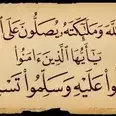 للَّهَ وَمَلَٰٓئِكَتَهُۥ يُصَلُّونَ عَلَى ٱل
يَٰٓأَيُّهَا ٱلَّذِينَ ءَامَنُوا۟
وا۟ عَلَيْهِ وَسَلِّمُوا۟ تَسْ